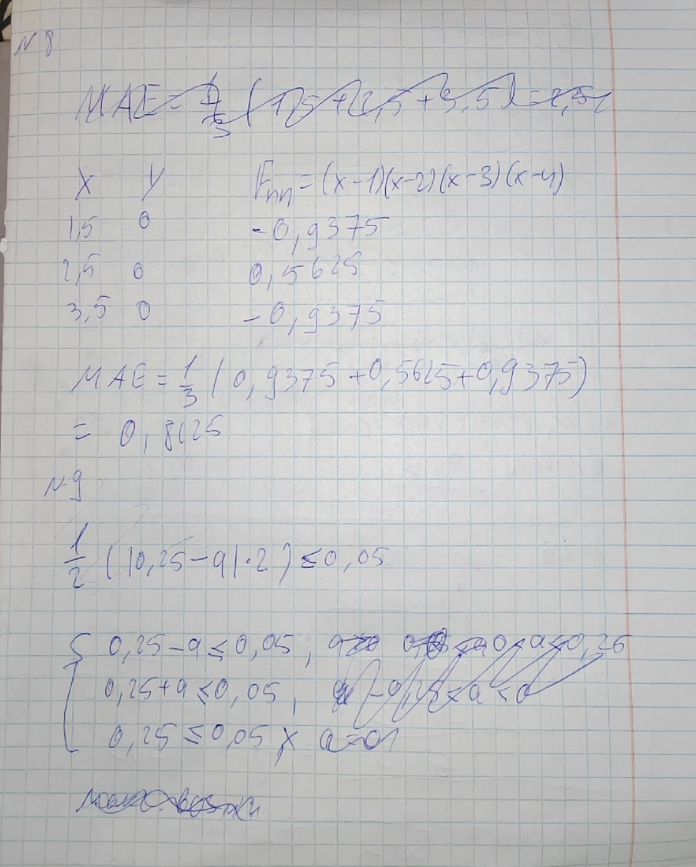 № 8
MAE = 1/3 (1,5 + 2,5 + 3,5) = 2,5
X Y Fnn = (x-1)(x-2)(x-3)(x-4)
1,5 0 -0,9375
2,5 0 0,5625
3,5 0 -0,9375
MAE = 1/3 (0,9375 + 0,5625 + 0,9375)
= 0,8125
№ 9
1/2 (|0,25 - a| · 2) ≤ 0,05
0,25 - a ≤ 0,05,
0,25 + a ≤ 0,05,
0,25 ≤ 0,05 X a = 0